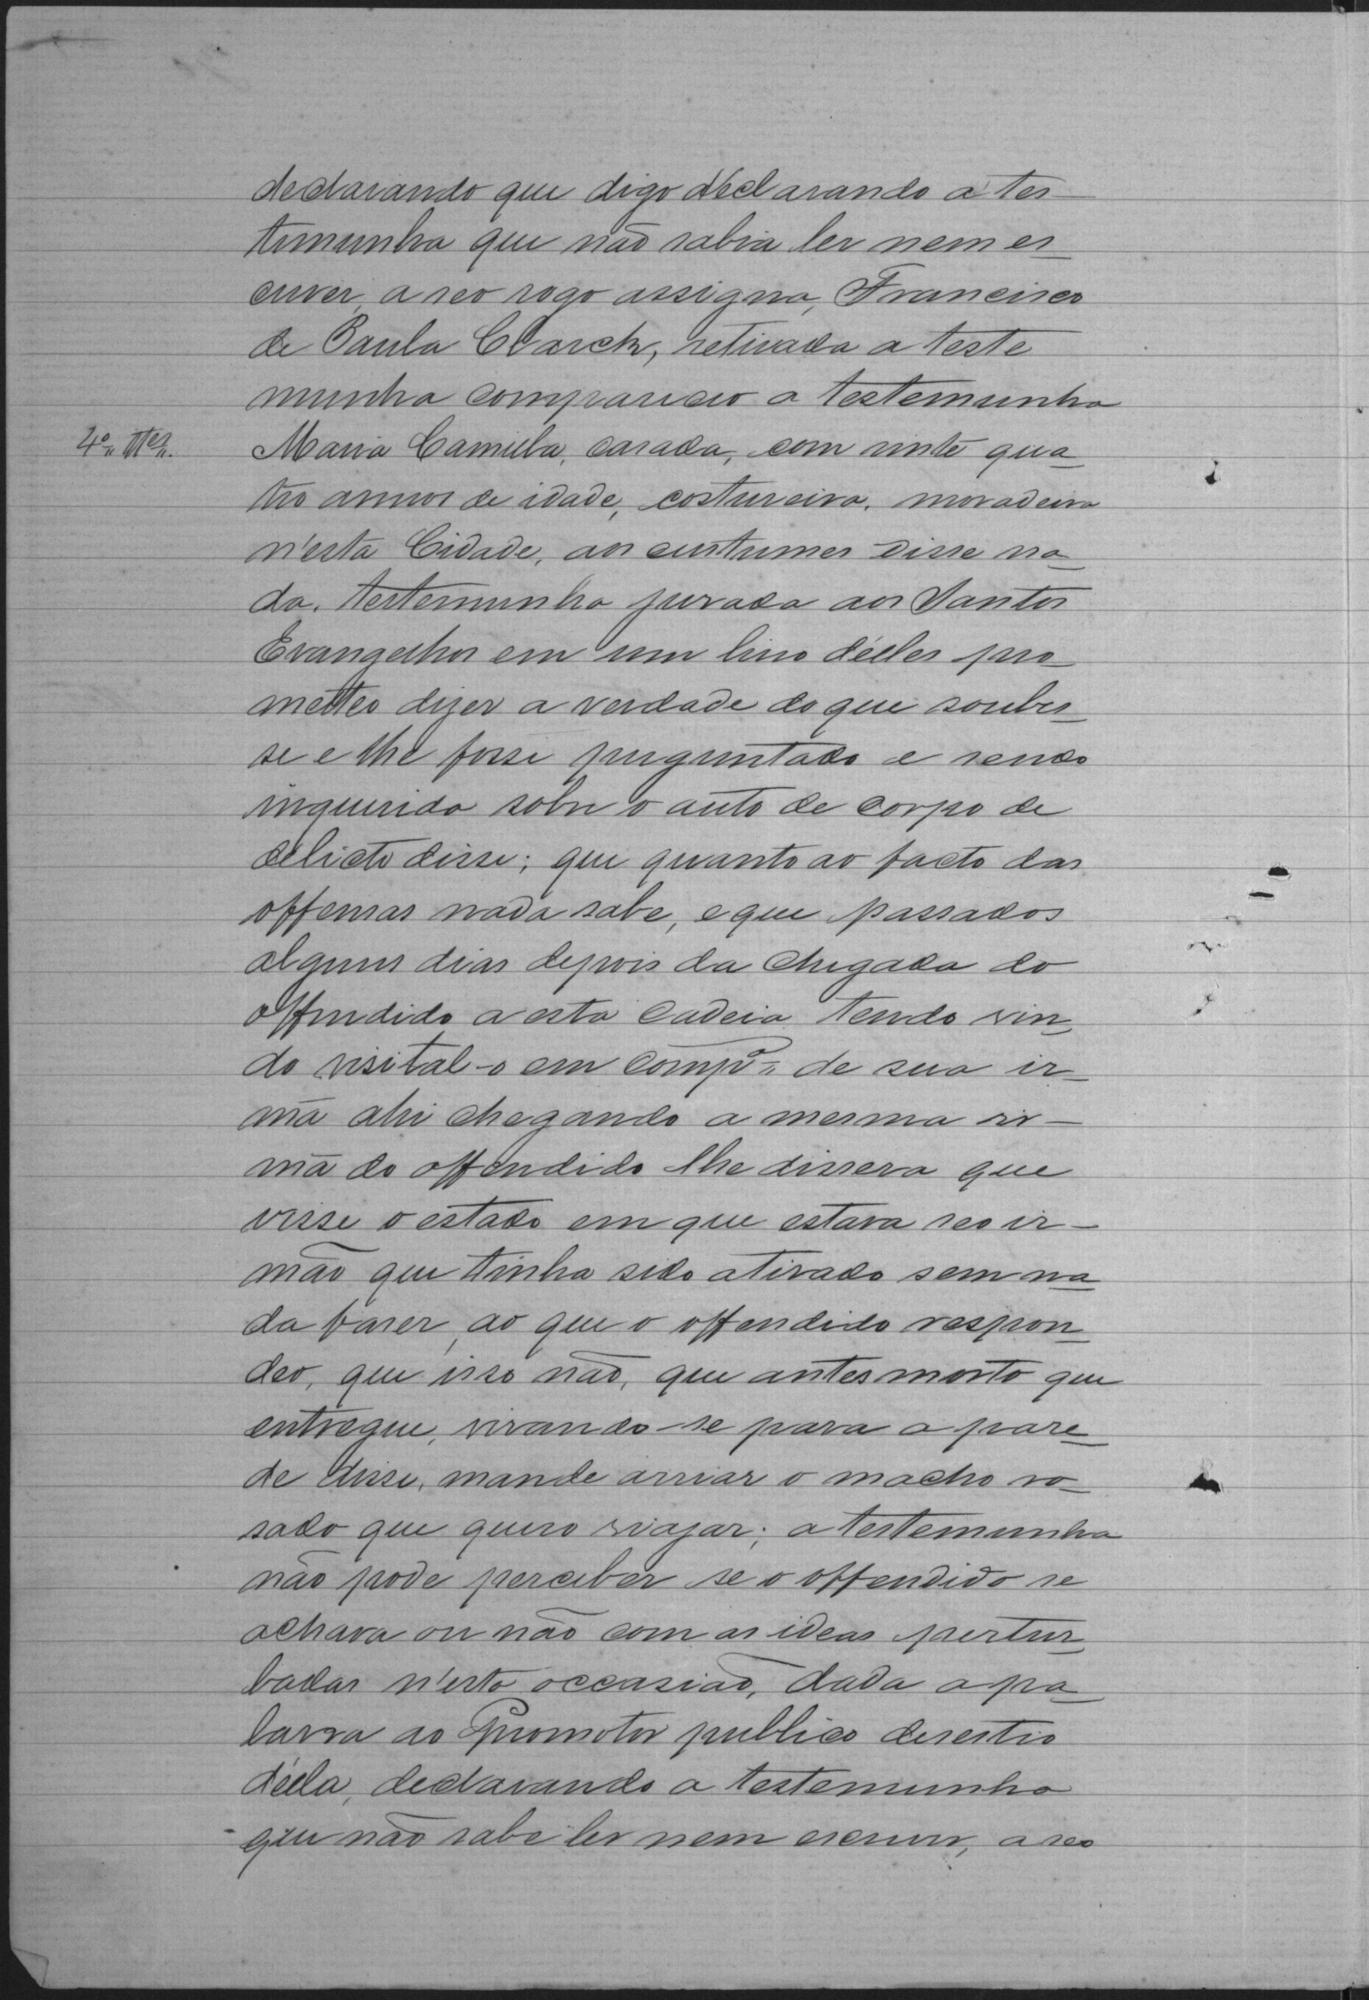 declarando que digo declarando a tes-
temunha que não sabia ler nem es-
crever, a seo rogo assigna, Francisco
de Paula Clarck, retirada a teste
munha compareceo a testemunha
4ª Tes. Maria Camilla, casada, com vinte qua-
tro annos de idade, costureira, moradeira
n'esta Cidade, aos custumes disse na-
da, testemunha jurada aos Santos
Evangelhos em um livro d'elles pro-
metteo dizer a verdade do que soubes-
se e lhe fosse preguntado e sendo
inquerida sobre o auto de corpo de
delicto disse; que quanto ao facto das
offensas nada sabe, e que passados
alguns dias depois da chegada do
offendido a esta cadeia tendo vin-
do visital-o em compª de sua ir-
mã ahi chegando a mesma ir-
mã do offendido lhe dissera que
visse o estado em que estava seo ir-
mão que tinha sido atirado sem na-
da faser, ao que o offendido respon-
deo, que isso não, que antes morto que
entregue, virando-se para a pare-
de disse, mande arriar o macho ro-
sado que quero viajar; a testemunha
não pode perceber se o offendido se
achava ou não com as ideas pertur-
badas n'esta occasião, dada a pa-
lavra ao Promotor publico desestio
d'ella, declarando a testemunha
que não sabe ler nem escrever, a seo